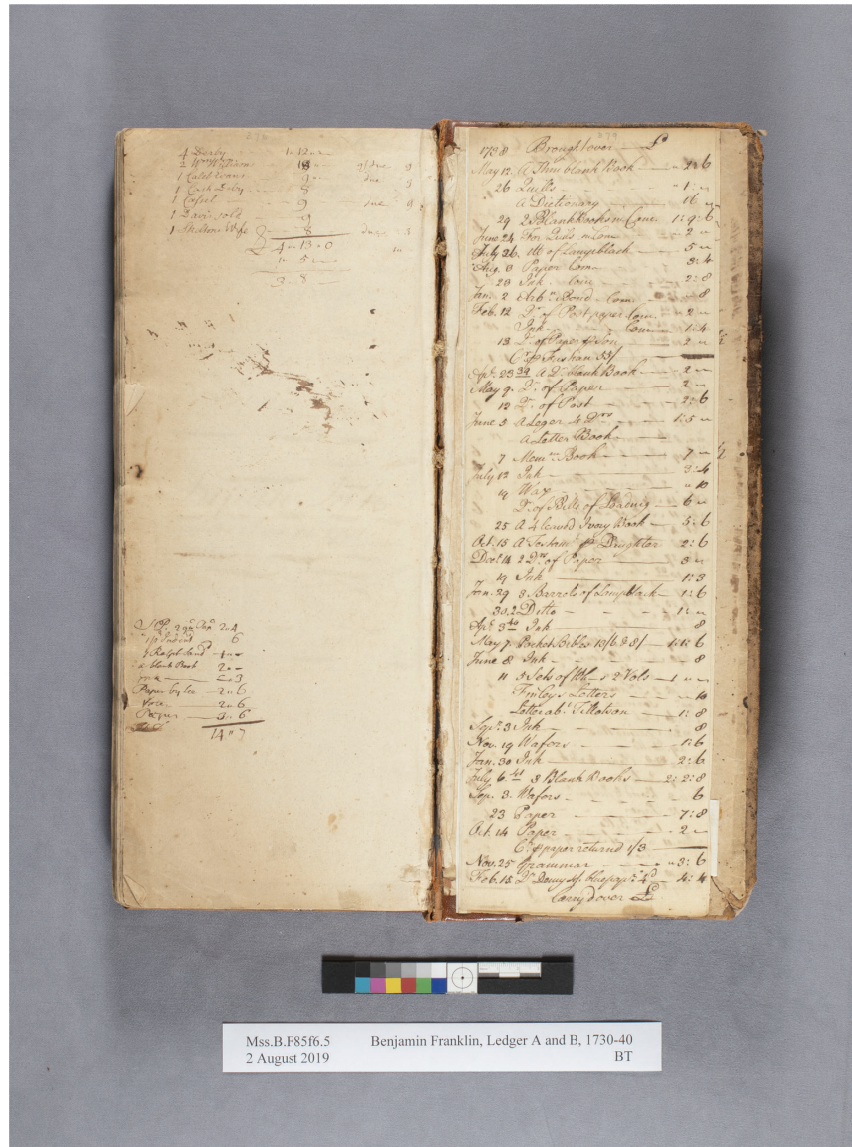 4 Derby 1 12
2 Wm Williams 18 9/ due 9
1 Calet Evans 9 due 9
1 Cash Derby 8
1 9 due 9
1 David sold 9
1 Wife 8 due 8
4 " 13 " 0
1 " 5
3 8
2 qu Pap 2 " 4
6
Ralph Sand
a blank Book 2 "
Ink 3
Paper by Lee 2 " 6
2 " 6
Paper 3 " 6
14 " 7
1738 Brought over £
May 12. A Thin blank Book 2: 6
26 Quills 1: "
A Dictionary 16
29 2 Blank Books in Com 1: 9: 6
June 24 For Quills in Com 2 "
July 26. of Lampblack 5 "
Aug. 3 Paper Com 3: 4
23 Ink Com 2: 8
Jan. 2 Bond Com 8
Feb. 12 Dr of Post paper Com 2 "
Ink Com 1: 4
13 Dr of Paper & Son 2 "
Cr 55/
Apr. 23 39 A Qr. blank Book 2 "
May 9. Qr. of Paper 2 "
12 Qr. of Post 2: 6
June 5 A Leger 4 Qrs 1: 5 "
A Letter Book
7 Memm Book 7 "
July 12 Ink 3: 4
14 Wax " 10
Qr. of Bills of Lading 6 "
25 A 4 leav'd Ivory Book 5: 6
Oct. 15 A Testamt pr Daughter 2: 6
Decr 14 2 Qrs. of Paper 3 "
19 Ink 1: 3
Jan. 29 3 Barrels of Lampblack 1: 6
30. 2 Ditto 1: "
Apr. 3 40 Ink 8
May 7 Pocket Bibles 13/6 & 8/ 1: 1: 6
June 8 Ink 8
11 5 Sets of Wh— s 2 Vols 1 " "
Finley's Letters " 10
Letter abt Tillotson 1: 8
Sepr. 3 Ink 8
Nov. 19 Wafers 1: 6
Jan. 30 Ink 2: 6
July 6. 41 3 Blank Books 2: 2: 8
Sep. 3. Wafers 6
23 Paper 7: 8
Oct. 14 Paper 2 "
Cr. p paper returnd 1/3
Nov. 25 Grammar " 3: 6
Feb. 15 Qr Demy & blue papr 4d 4: 4
Carryd over £
Mss.B.F85f6.5 Benjamin Franklin, Ledger A and B, 1730-40
2 August 2019 BT